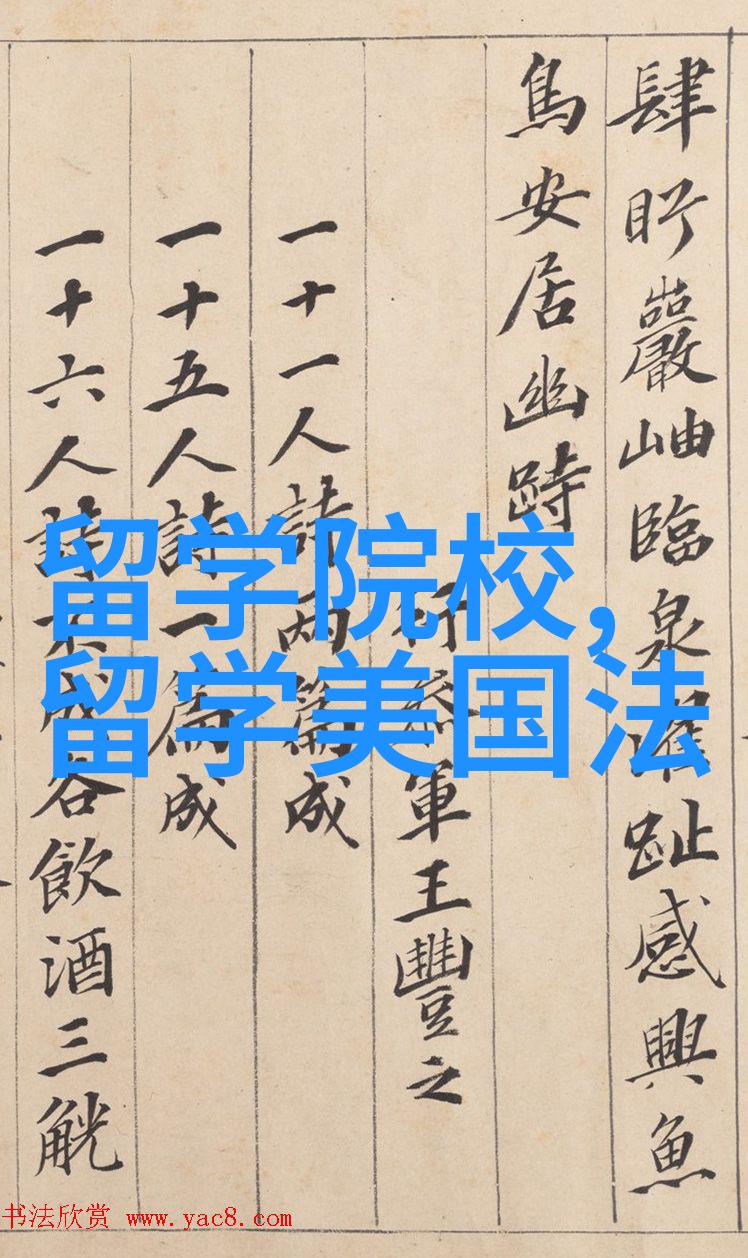 肆盱巖岫臨泉濯趾感興魚
鳥安居幽跱
行參軍王豐之
一十一人詩兩篇成
一十五人詩一篇成
一十六人詩不成各飲酒三觥
留学院校,
留学美国法
书法欣赏 www.yac8.com